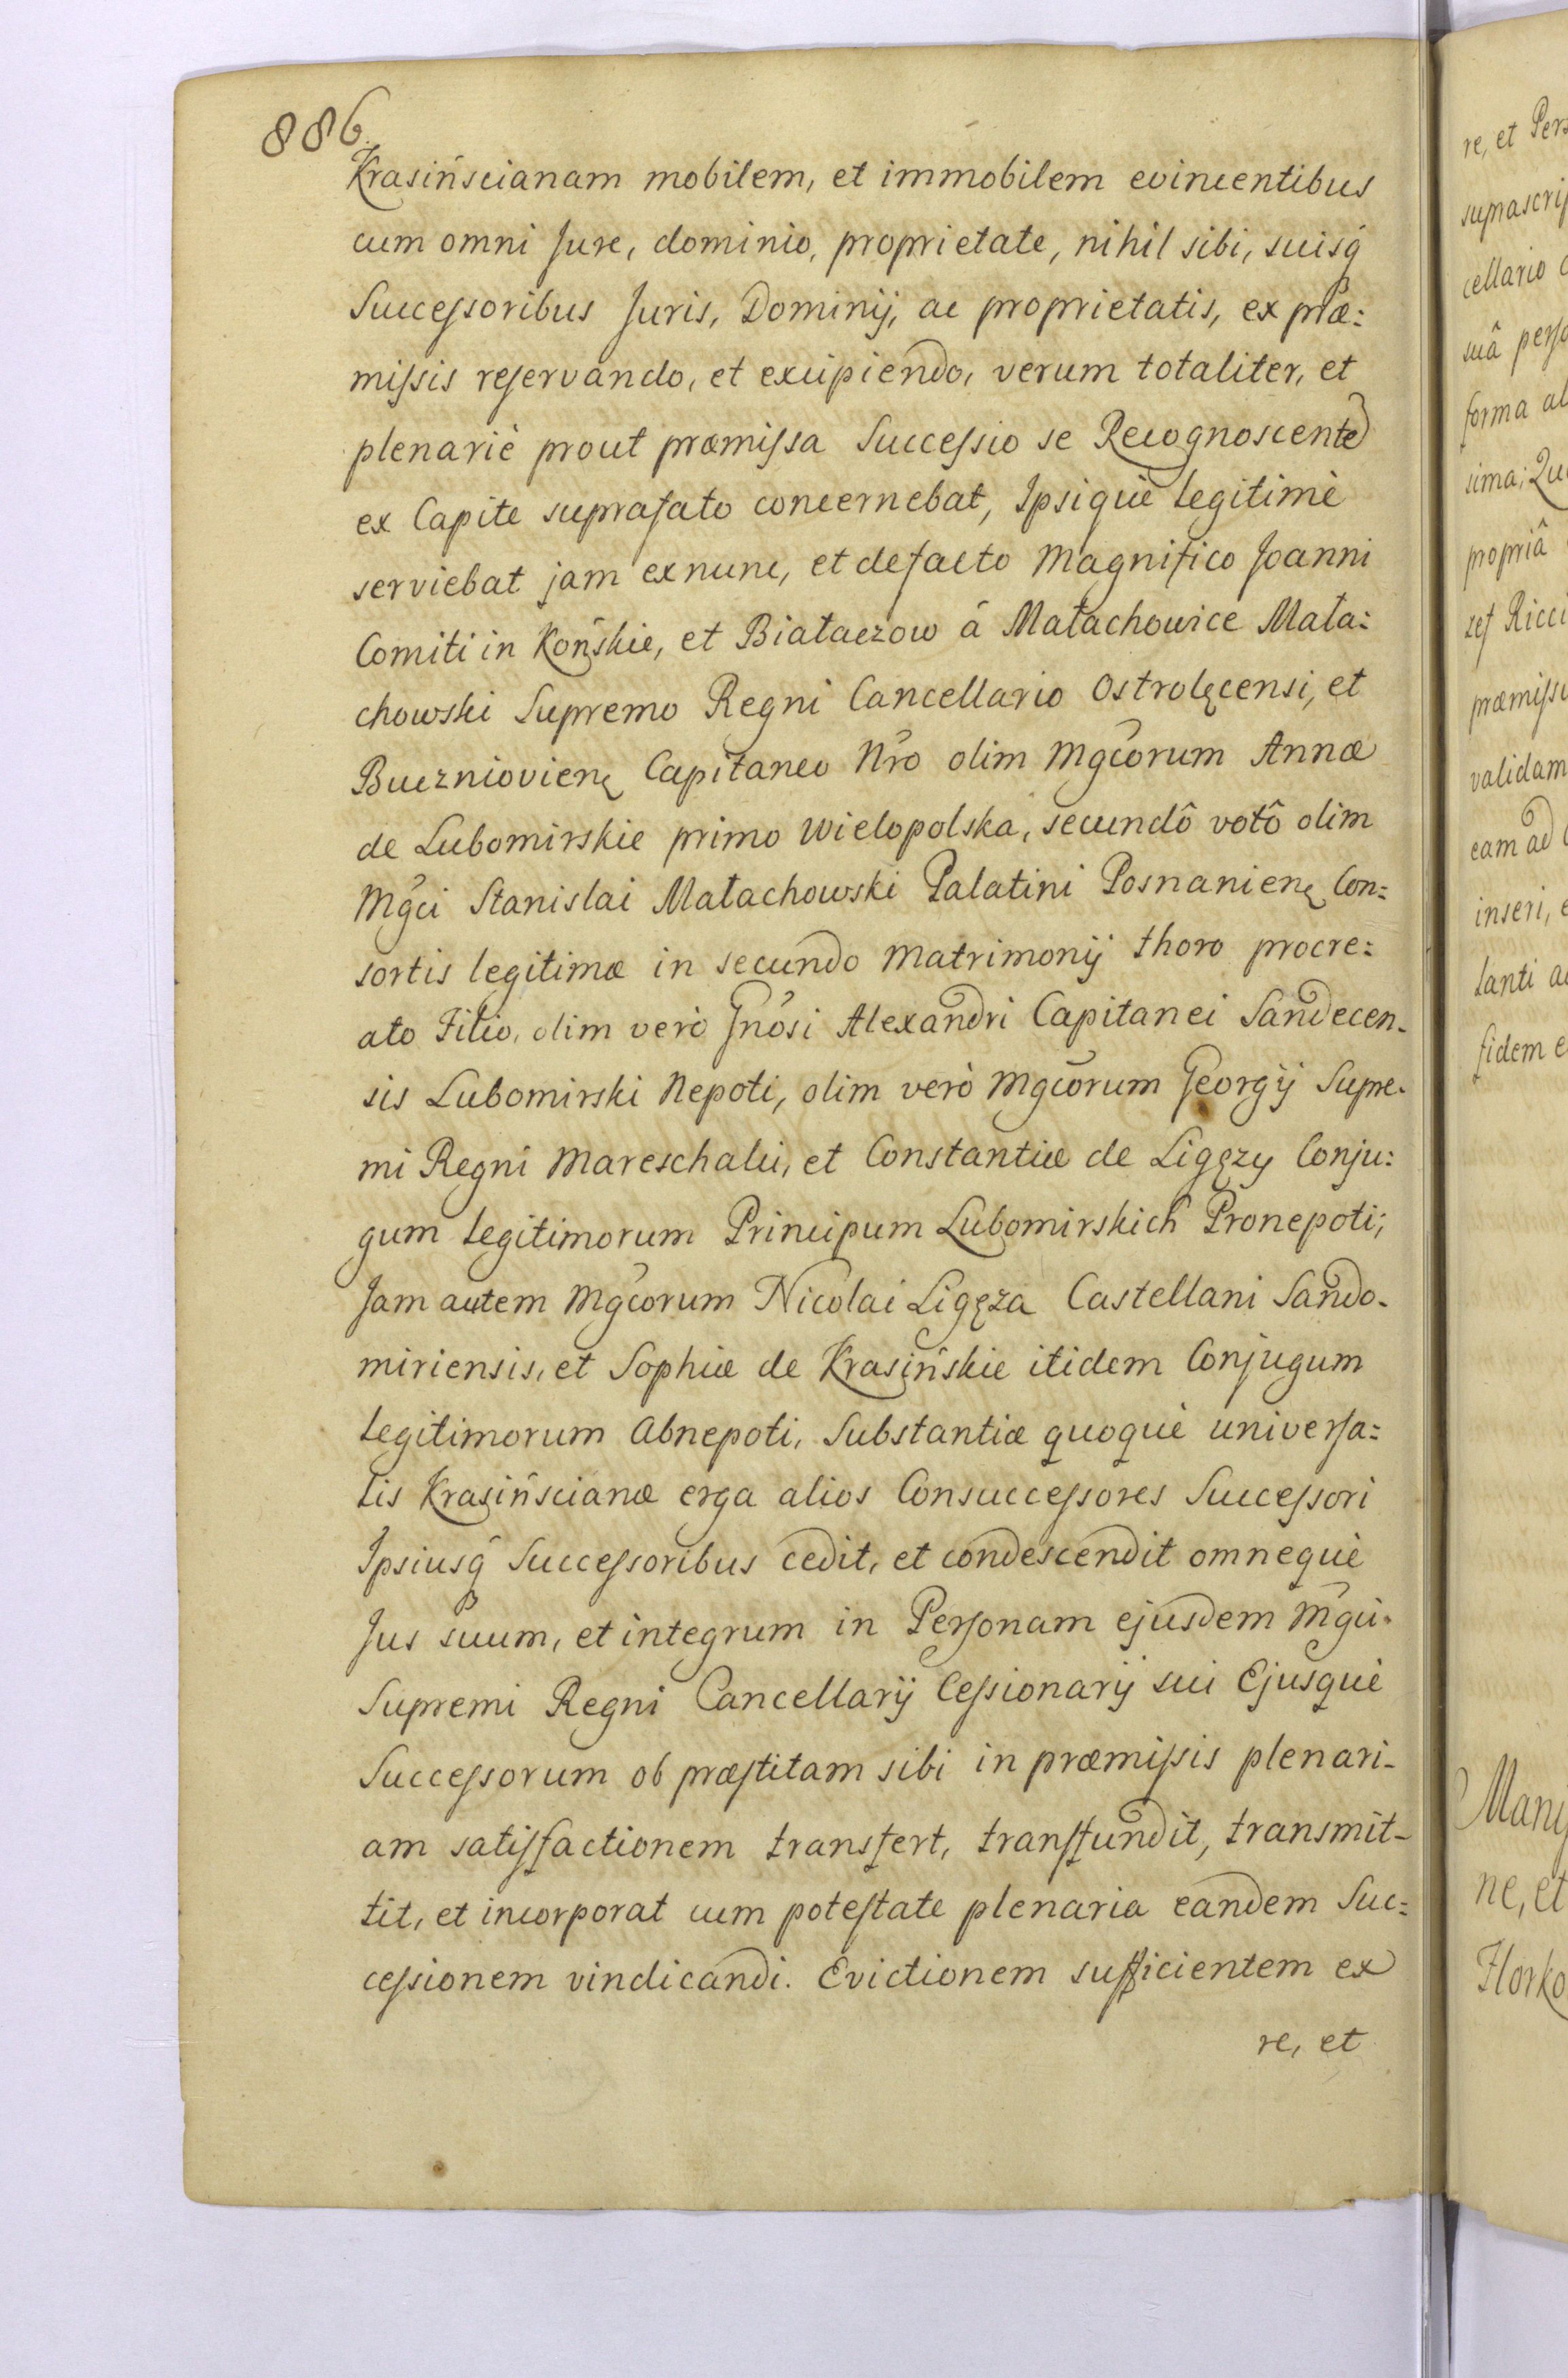 886.
Krasińscianam mobilem, et immobilem evincentibus
cum omni Jure, dominio, proprietate, nihil sibi, suisq́
Successoribus Juris, Dominij, ac proprietatis, ex præ:
missis reservando, et excipiendo, verum totaliter, et
plenariè prout præmissa Successio se Recognoscente
ex Capite suprafato concernebat, Ipsiquè legitimè
serviebat jam exnunc, et defacto Magnifico Joanni
Comiti in Końskie, et Białaczow á Małachowice Mała:
chowski Supremo Regni Cancellario Ostrolęcensi, et
Bucznioviens Capitaneo Nro olim Mgcorum Annæ
de Lubomirskie primo Wielopolska, secundô votô olim
Mgci Stanislai Małachowski Palatini Posnaniens Con:
sortis legitimæ in secundo Matrimonij thoro procre:
ato Filio, olim verò Gnosi Alexandri Capitanei Sandecen-
sis Lubomirski Nepoti, olim verò Mgcorum Georgij Supre-
mi Regni Mareschalci, et Constantiæ de Ligęzy Conju:
gum legitimorum Principum Lubomirskich Pronepoti;
Jam autem Mgcorum Nicolai Ligęza Castellani Sando-
miriensis, et Sophiæ de Krasińskie itidem Conjugum
legitimorum Abnepoti, Substantiæ quoquè universa:
lis Krasińscianæ erga alios Consuccessores Successori
Ipsiusq́ Successoribus cedit, et condescendit omnequè
Jus suum, et integrum in Personam ejusdem Mgci
Supremi Regni Cancellarij Cessionarij sui Ejusquè
Successorum ob præstitam sibi in præmissis plenari-
am satisfactionem transfert, transfundit, transmit-
tit, et incorporat cum potestate plenaria eandem Suc:
cessionem vindicandi. Evictionem sufficientem ex
re, et
re, et
cellario
suâ
forma
propriâ
validam
eam ad
inseri,
fidem
ne, et